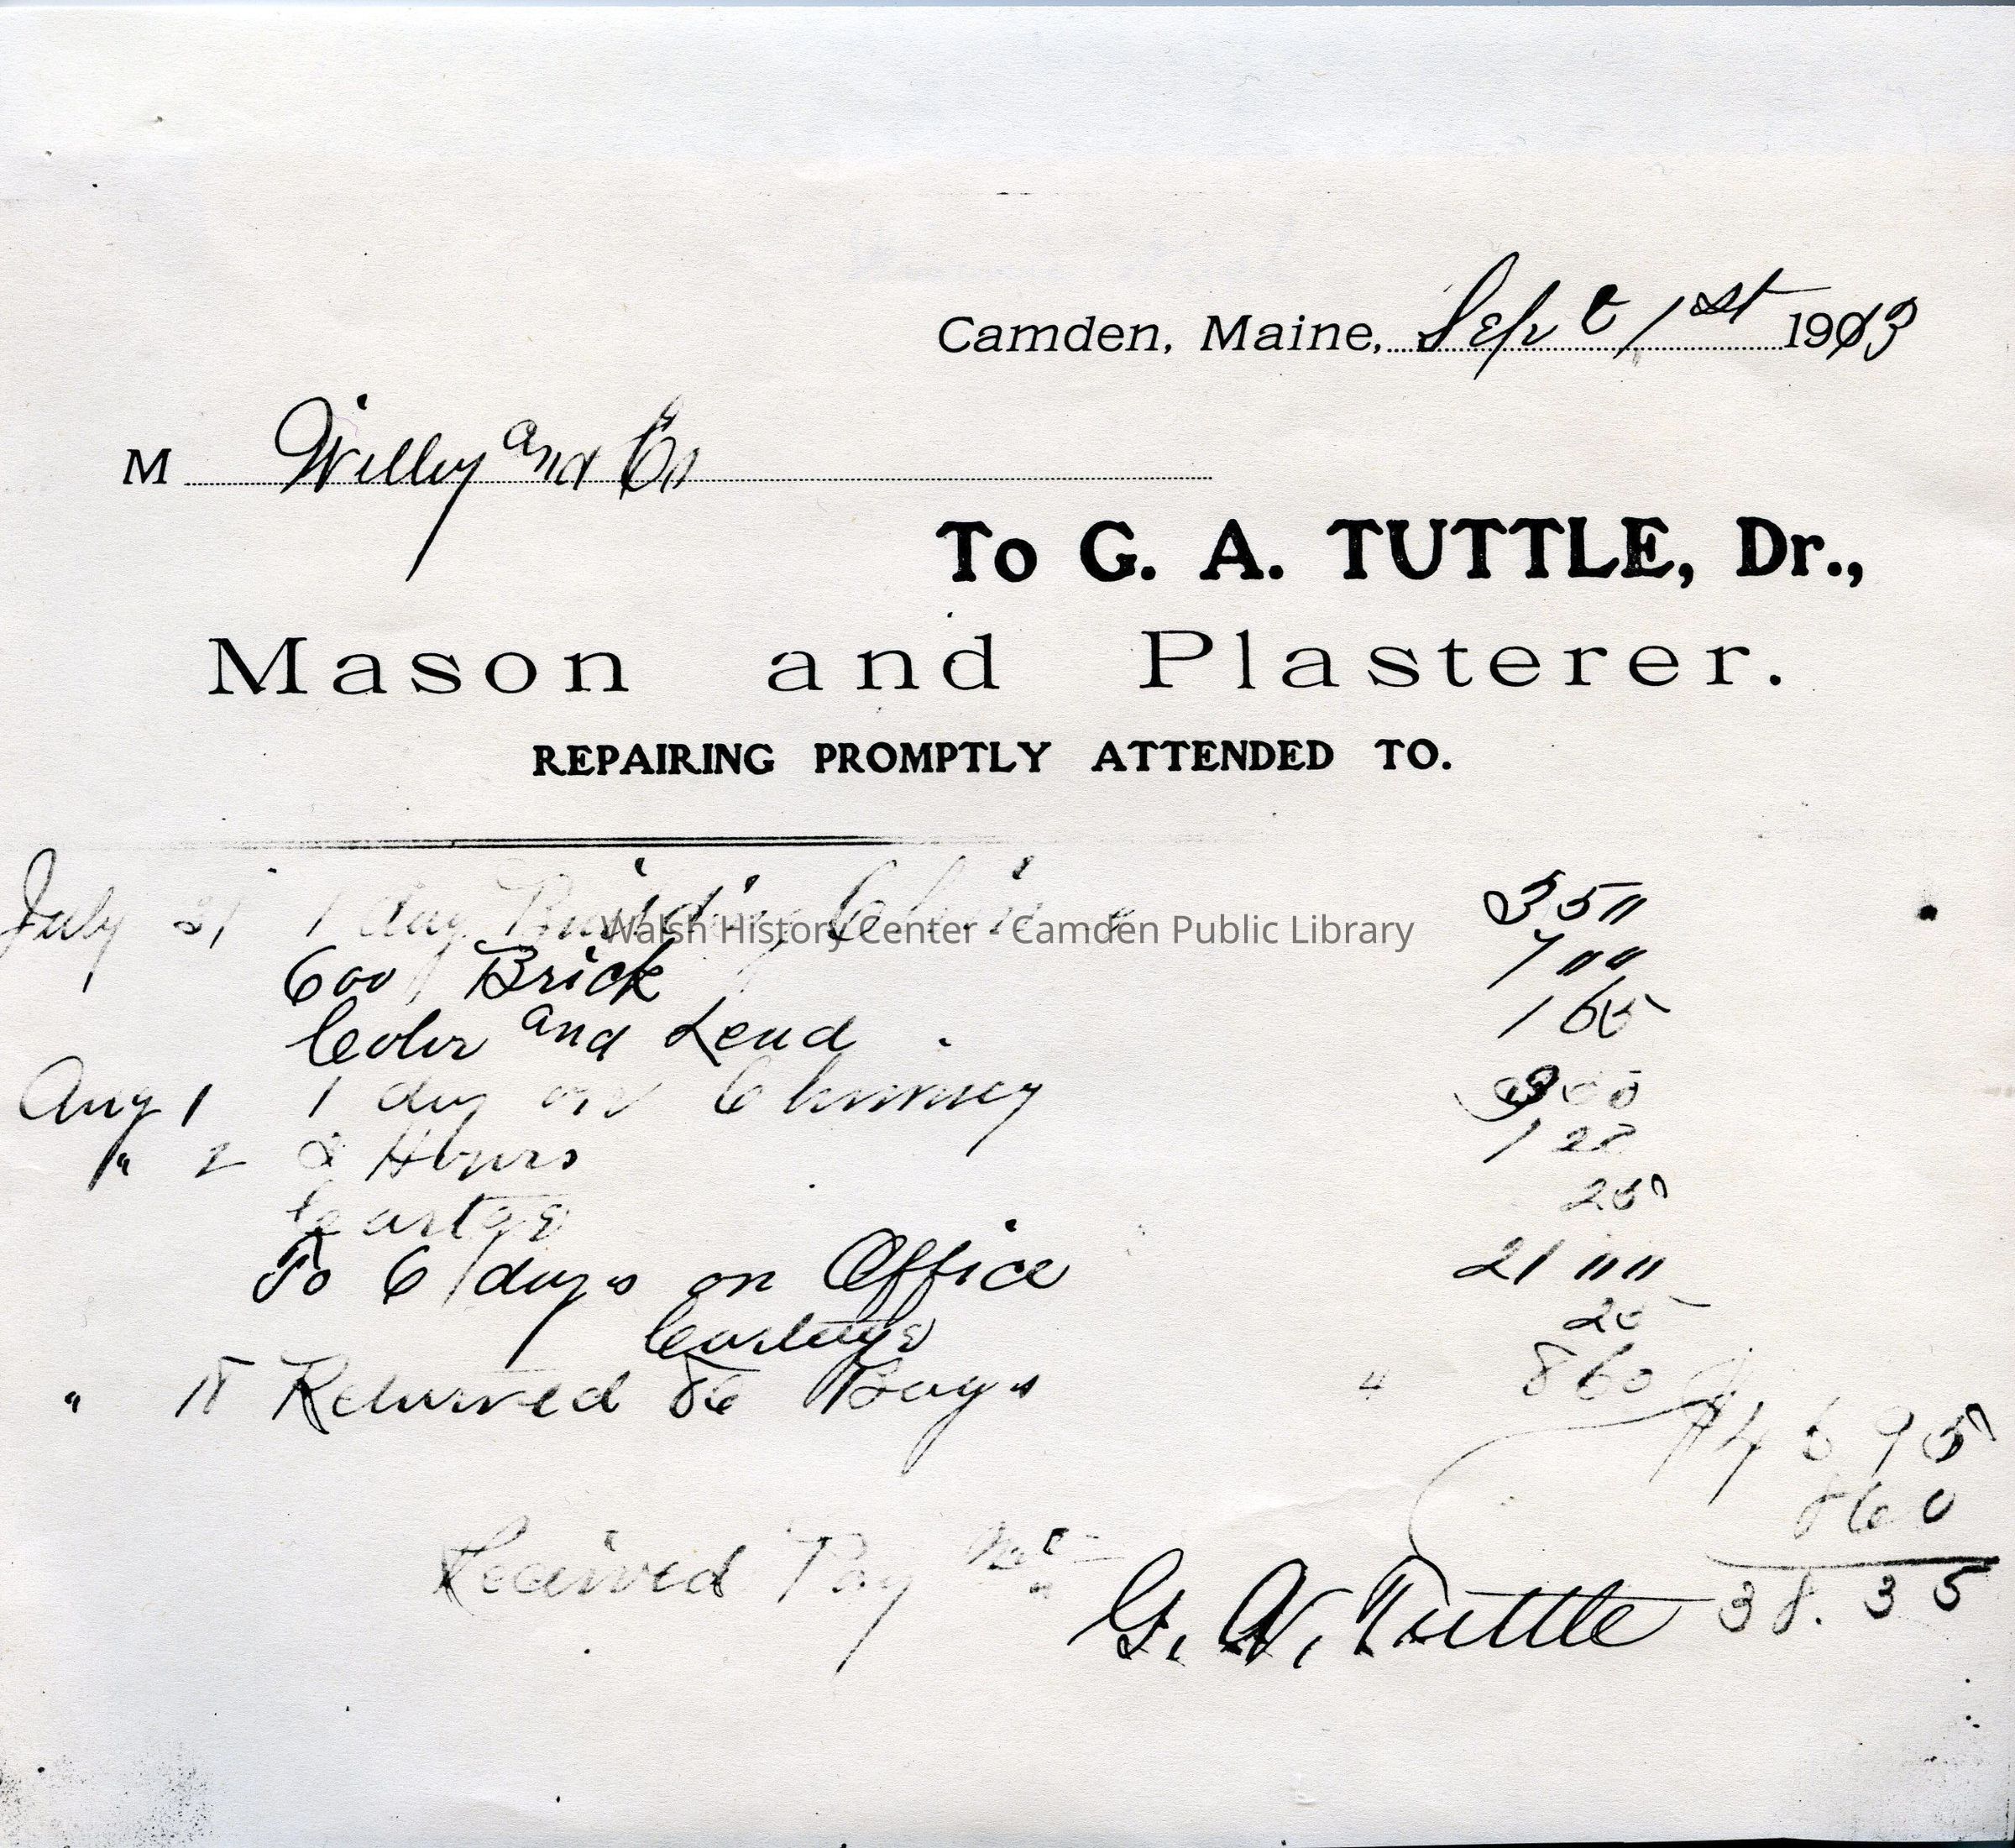 Camden, Maine, Sept 1st 1913
M Willey and Co
To G. A. TUTTLE, Dr.,
Mason and Plasterer.
REPAIRING PROMPTLY ATTENDED TO.
July 31 1 day Building 3 50
Walsh History Center - Camden Public Library
600 Brick 7 00
Color and Lead 1 65
Aug 1 1 day on Chimney
" 2 2 Hours 1
Cartage 25
To 6 days on Office 21 00
Cartage 25
" 18 Returned 86 Bags 8 60
$46 95
8 60
Received Pay
G. A. Tuttle 38.35